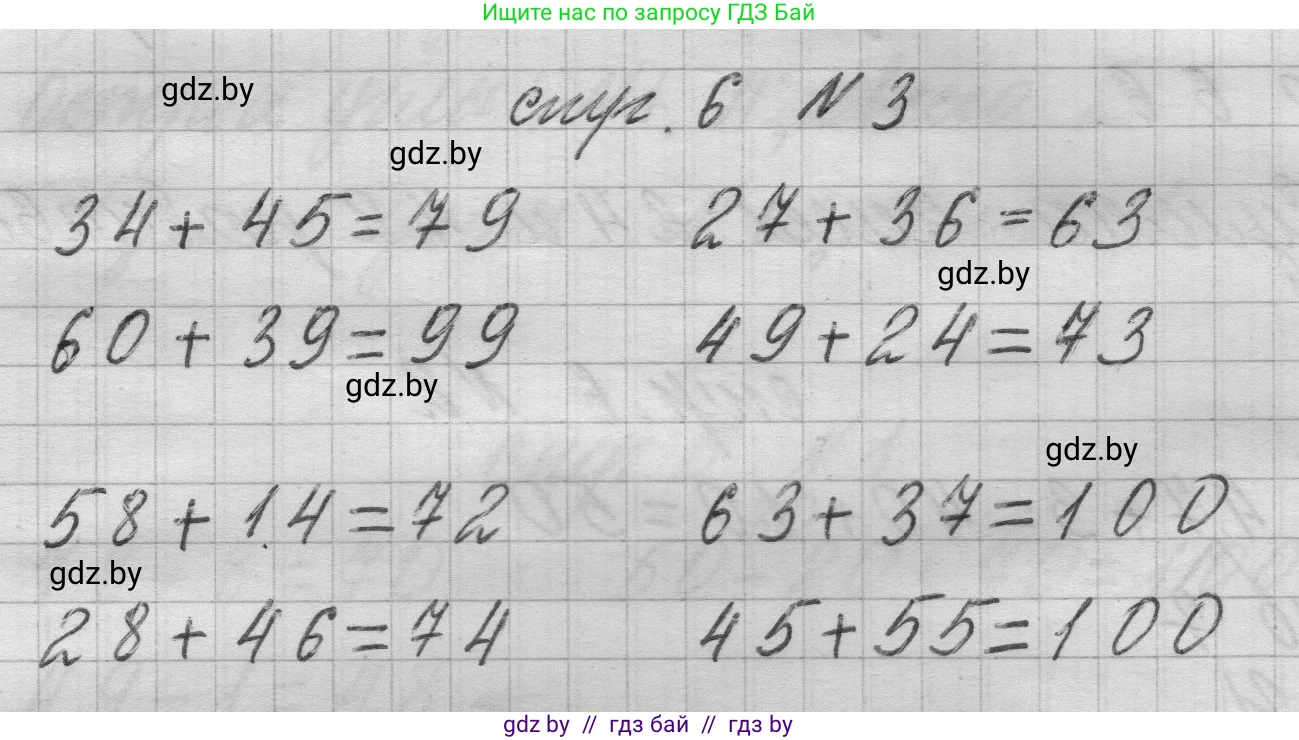 Ищите нас по запросу ГДЗ Бай
gdz.by
стр. 6 № 3
gdz.by
34 + 45 = 79 27 + 36 = 63
gdz.by
60 + 39 = 99 49 + 24 = 73
gdz.by
gdz.by
58 + 14 = 72 63 + 37 = 100
gdz.by
28 + 46 = 74 45 + 55 = 100
gdz by // гдз бай // гдз by